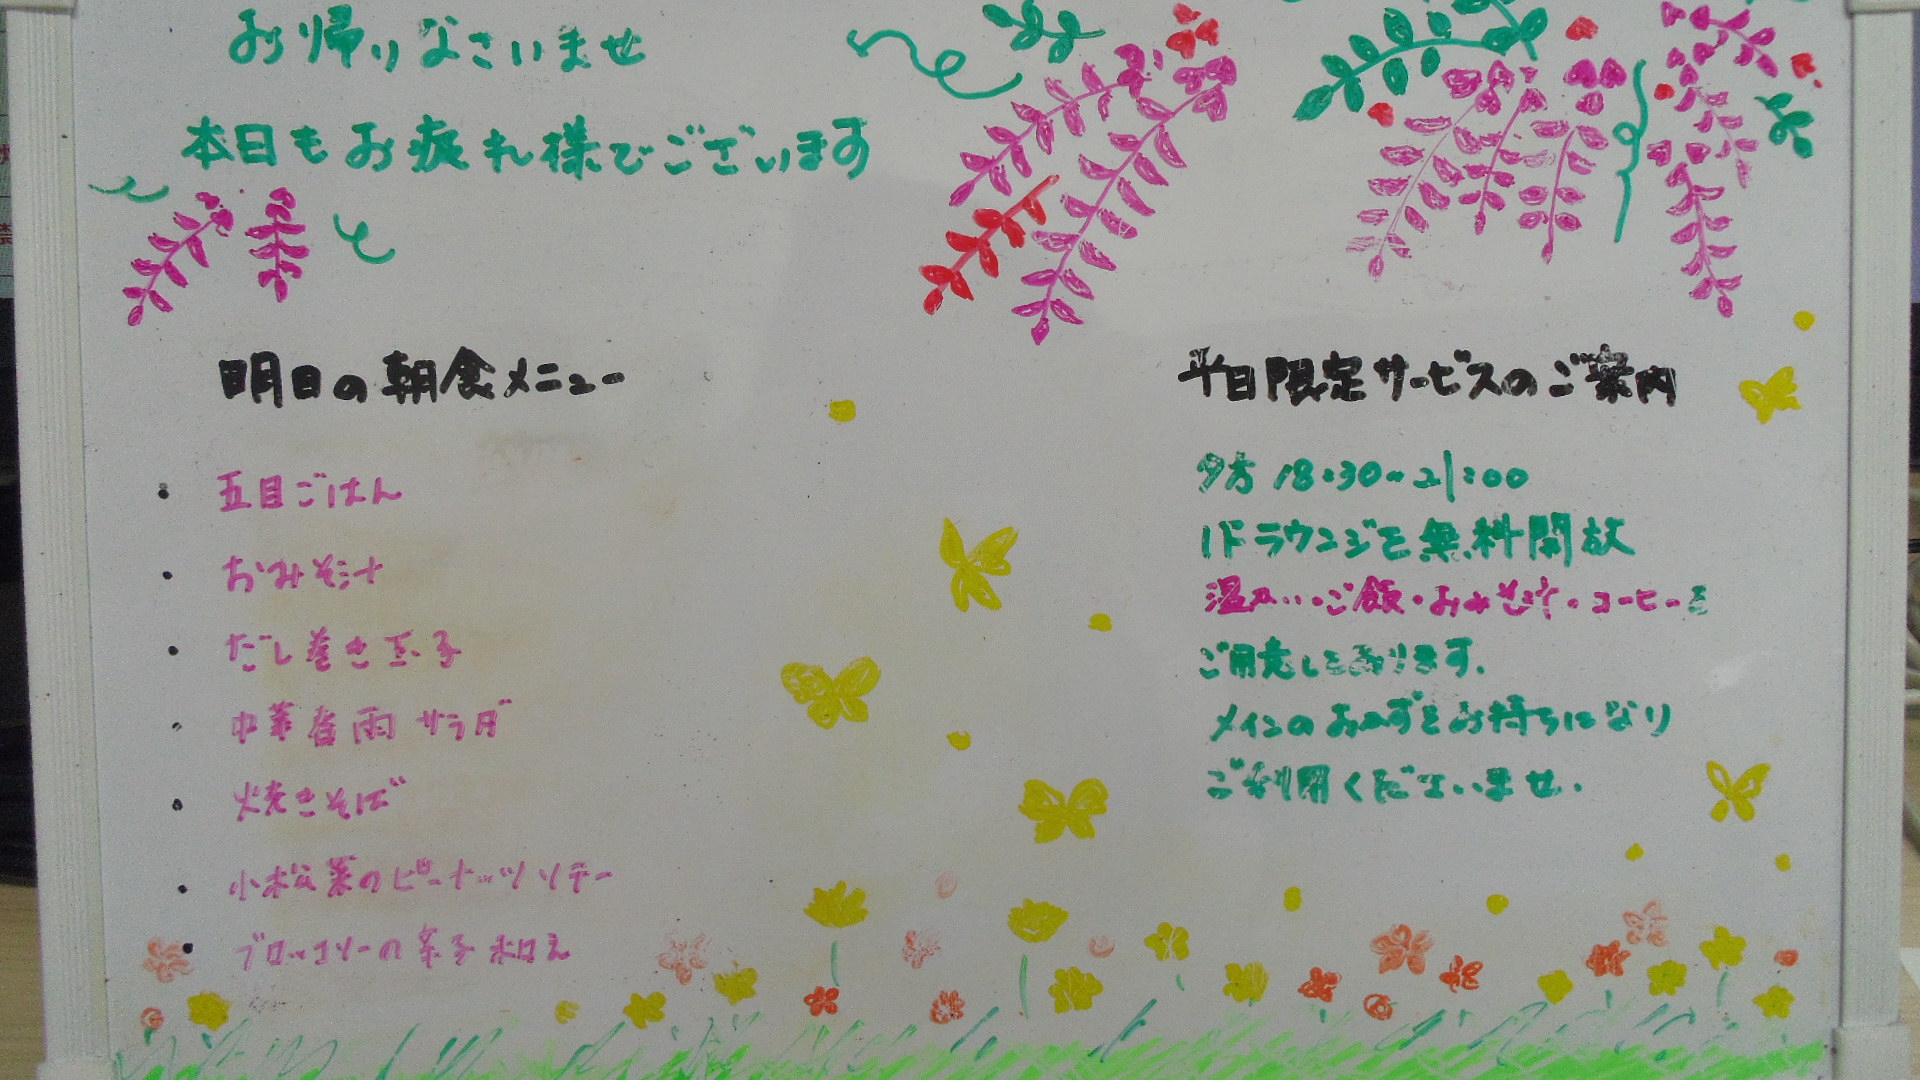 お帰りなさいませ
本日もお疲れ様でございます
明日の朝食メニュー
・五目ごはん
・おみそ汁
・だし巻き玉子
・中華春雨サラダ
・焼きそば
・小松菜のピーナッツソテー
・ブロッコリーの辛子和え
平日限定サービスのご案内
夕方 18:30~21:00
1Fラウンジを無料開放
温かいご飯・おみそ汁・コーヒーを
ご用意しております。
メインのおかずをお持ちになり
ご利用くださいませ。